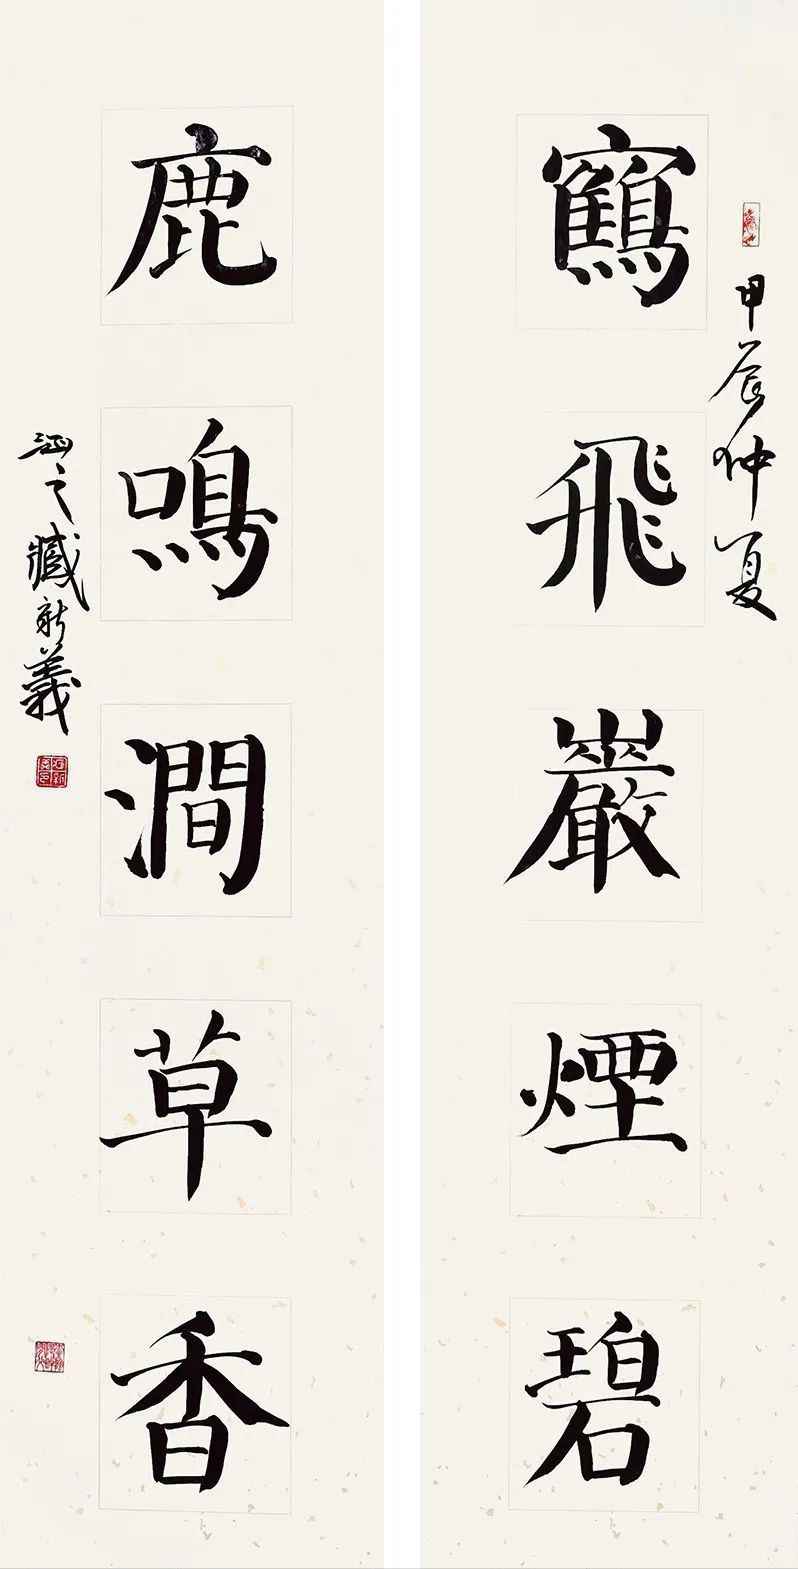 甲辰仲夏
鶴飛巖煙碧
鹿鳴澗草香
涵之臧新義